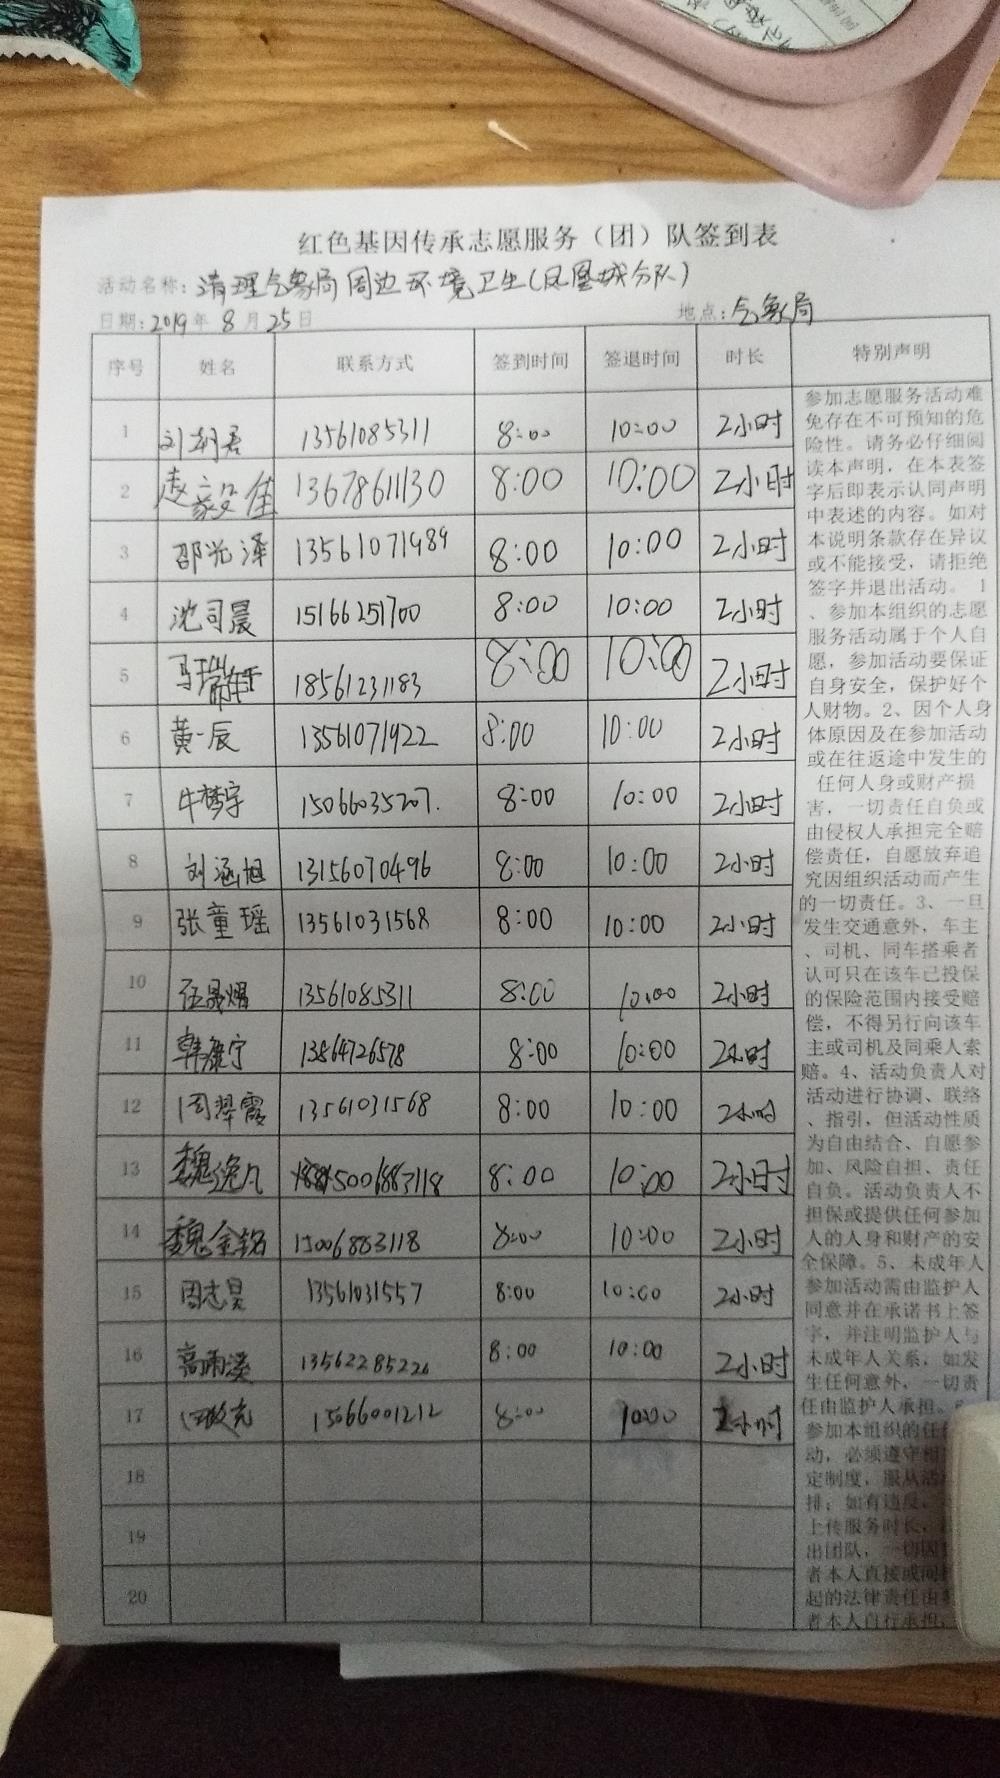 红色基因传承志愿服务（团）队签到表
活动名称：清理气象局周边环境卫生(凤凰城分队)
日期:2019年 8月 25日 地点:气象局
序号 姓名 联系方式 签到时间 签退时间 时长 特别声明
1 13561085311 8:00 10:00 2小时
2 13678611130 8:00 10:00 2小时
3 邵光泽 13561071989 8:00 10:00 2小时
4 沈司晨 15166251700 8:00 10:00 2小时
5 18561231183 8:00 10:00 2小时
6 黄一辰 13561071922 8:00 10:00 2小时
7 牛梦宇 15066035207. 8:00 10:00 2小时
8 刘涵旭 13156070496 8:00 10:00 2小时
9 张童瑶 13561031568 8:00 10:00 2小时
10 13561085311 8:00 10:00 2小时
11 韩康宁 13864726578 8:00 10:00 2小时
12 周翠霞 13561031568 8:00 10:00 2小时
13 魏逸凡 8:00 10:00 2小时
14 魏金铭 15006883118 8:00 10:00 2小时
15 周志昊 13561031557 8:00 10:00 2小时
16 高雨溪 13562285226 8:00 10:00 2小时
17 15066001212 8:00 10:00 2小时
18
19
20
参加志愿服务活动难
免存在不可预知的危
险性。请务必仔细阅
读本声明，在本表签
字后即表示认同声明
中表述的内容。如对
本说明条款存在异议
或不能接受，请拒绝
签字并退出活动。 1
、参加本组织的志愿
服务活动属于个人自
愿，参加活动要保证
自身安全，保护好个
人财物。2、因个人身
体原因及在参加活动
或在往返途中发生的
任何人身或财产损
害，一切责任自负或
由侵权人承担完全赔
偿责任，自愿放弃追
究因组织活动而产生
的一切责任。3、一旦
发生交通意外，车主
、司机、同车搭乘者
认可只在该车已投保
的保险范围内接受赔
偿，不得另行向该车
主或司机及同乘人索
赔。4、活动负责人对
活动进行协调、联络
、指引，但活动性质
为自由结合、自愿参
加、风险自担、责任
自负。活动负责人不
担保或提供任何参加
人的人身和财产的安
全保障。5、未成年人
参加活动需由监护人
同意并在承诺书上签
字，并注明监护人与
未成年人关系，如发
生任何意外，一切责
任由监护人承担。
参加本组织的任
动，必须遵守相
定制度，服从活
排；如有违反，
上传服务时长，
出团队，一切因
者本人直接或间
起的法律责任由
者本人自行承担，